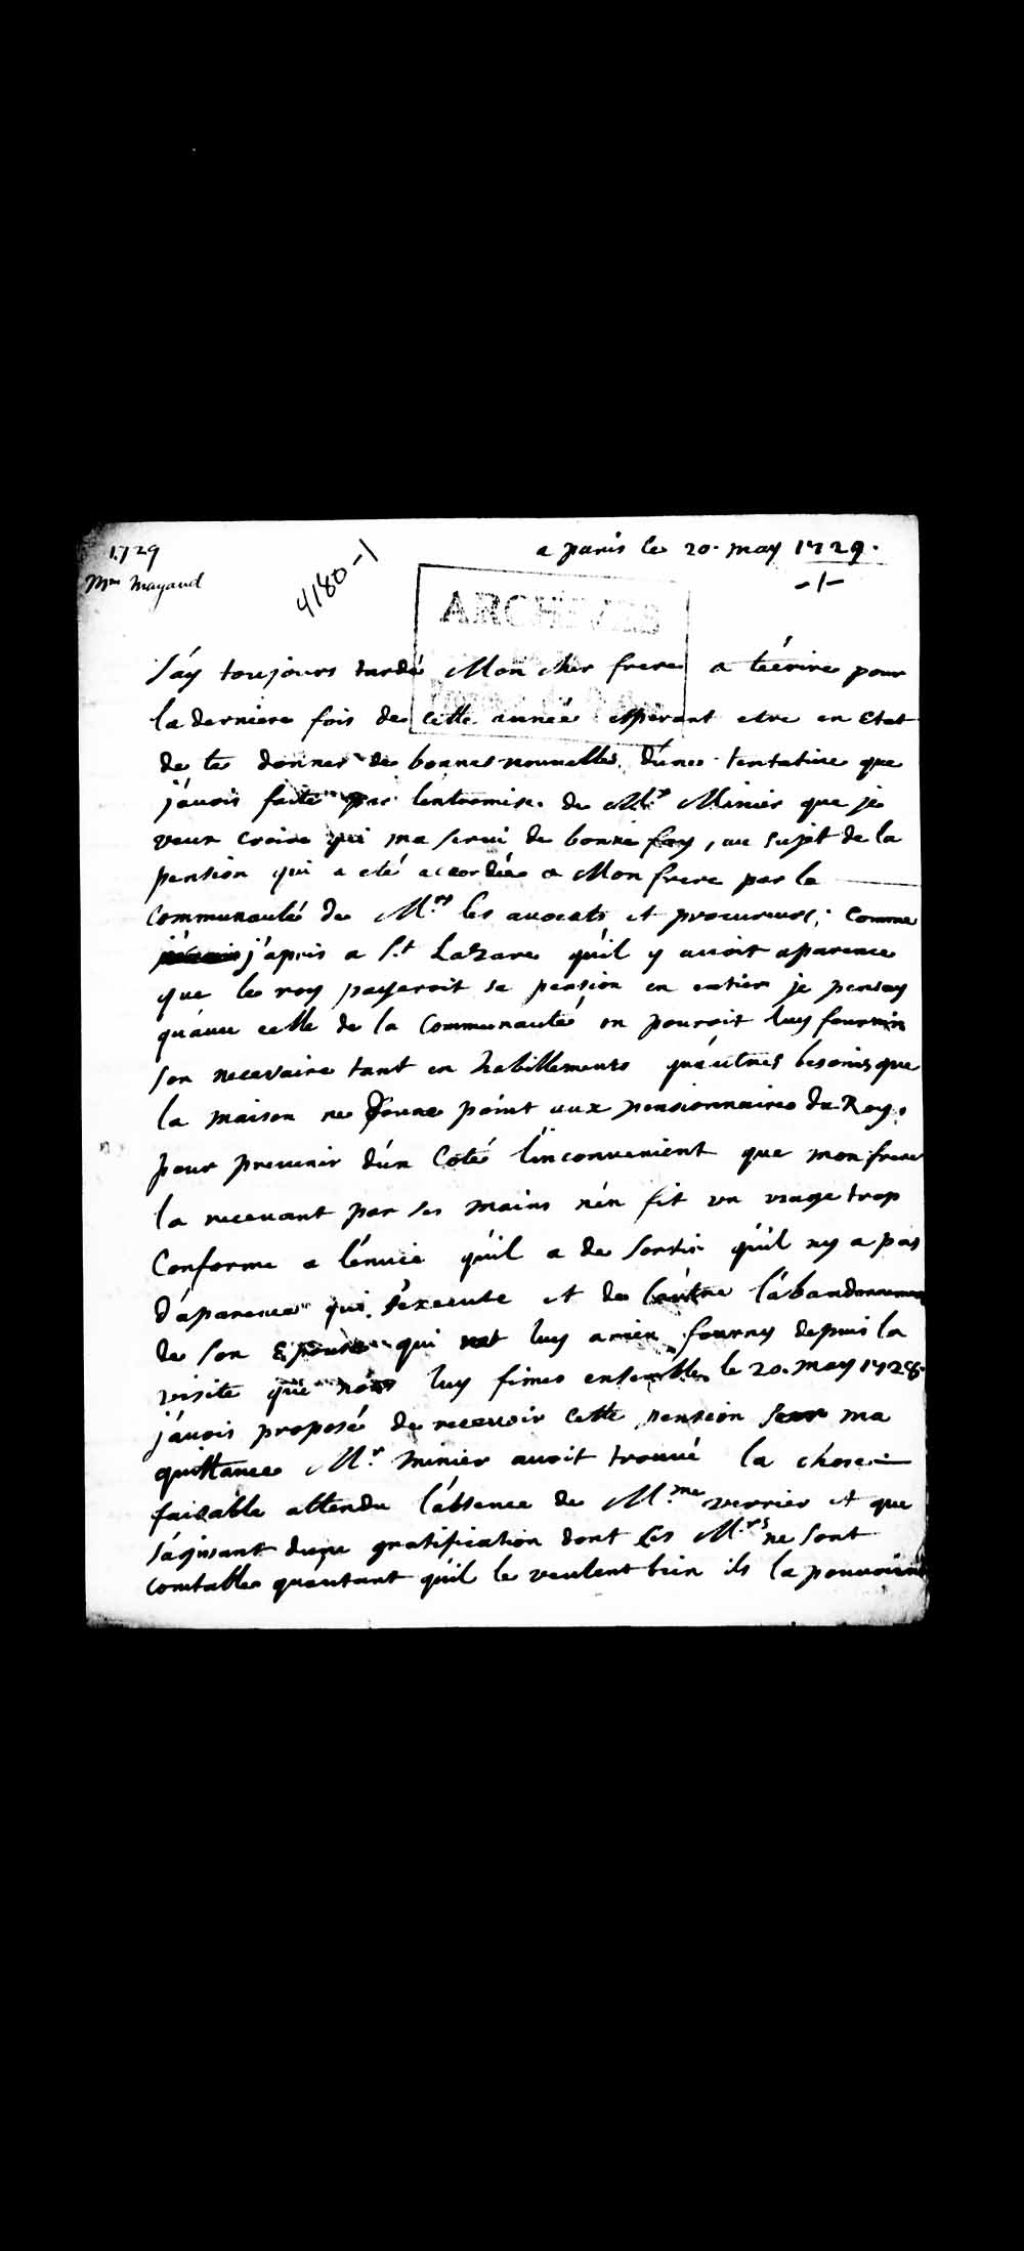 1729
Mme Mayaud
4180-1
a paris le 20. may 1729.
-1-
ARCHIVES
J'áy toujours tardé Mon cher frere a técrire pour
la derniere fois de cette année esperant etre en Etat
de te donner de bonnes nouvelles d'une tentative que
j'avois faite par lentremise de Mr. Minier que je
veux croire qui ma servi de bonne foy, au sujet de la
pension qui a eté accordée a Mon frere par la
Communauté de Mrs les avocats et procureurs; Comme
j'apris a St. Lazare qúil y avoit aparence
que le roy payeroit sa pension en entier je pensay
qúavec celle de la Communauté on pouroit luy fournir
son necessaire tant en habillements qúautres besoins que
la maison ne Donne point aux pensionnaires du Roy.
pour prevenir dún Coté línconvenient que mon frere
la recevant par ses mains nén fit un usage trop
Conforme a lénvie qúil a de Sortir qúil ny a pas
dáparence qui séxecute et de láutre lábandonnement
de son Epouse qui luy a rien fourny depuis la
visite que nous luy fimes ensemble le 20. may 1728.
jávois proposé de recevoir Cette pension sur ma
quittance Mr. Minier avoit trouvé la chose
faisable attendu lábsence de Mme. verrier et que
ságissant dune gratification dont les Mrs. ne sont
comtables quáutant qúil le veulent bien ils la pouvoient